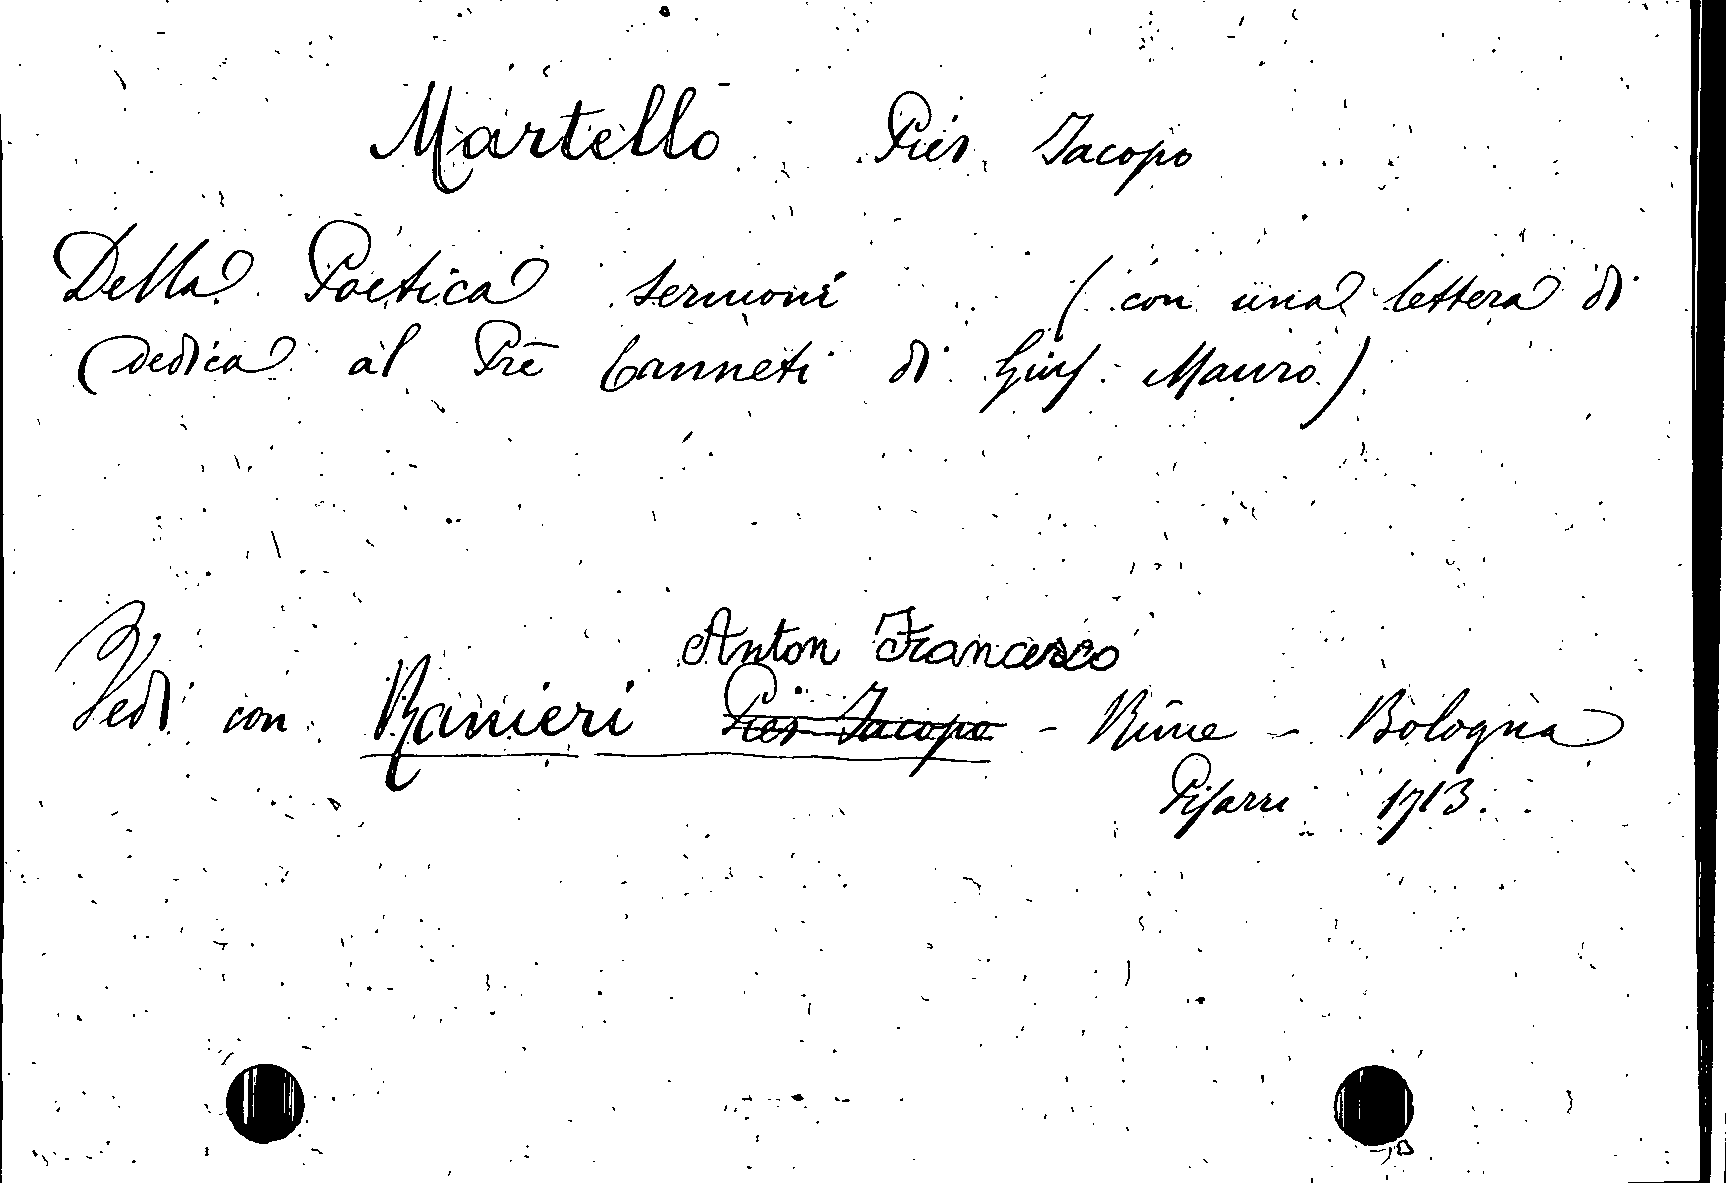 Martello Pier Jacopo
Della Poetica sermoni (con una lettera di
dedica al Prē Canneti di Gius. Mauro)
Anton Francesco
Vedi con Ranieri Pier Jacopo - Rime - Bologna
Pisarri 1713.